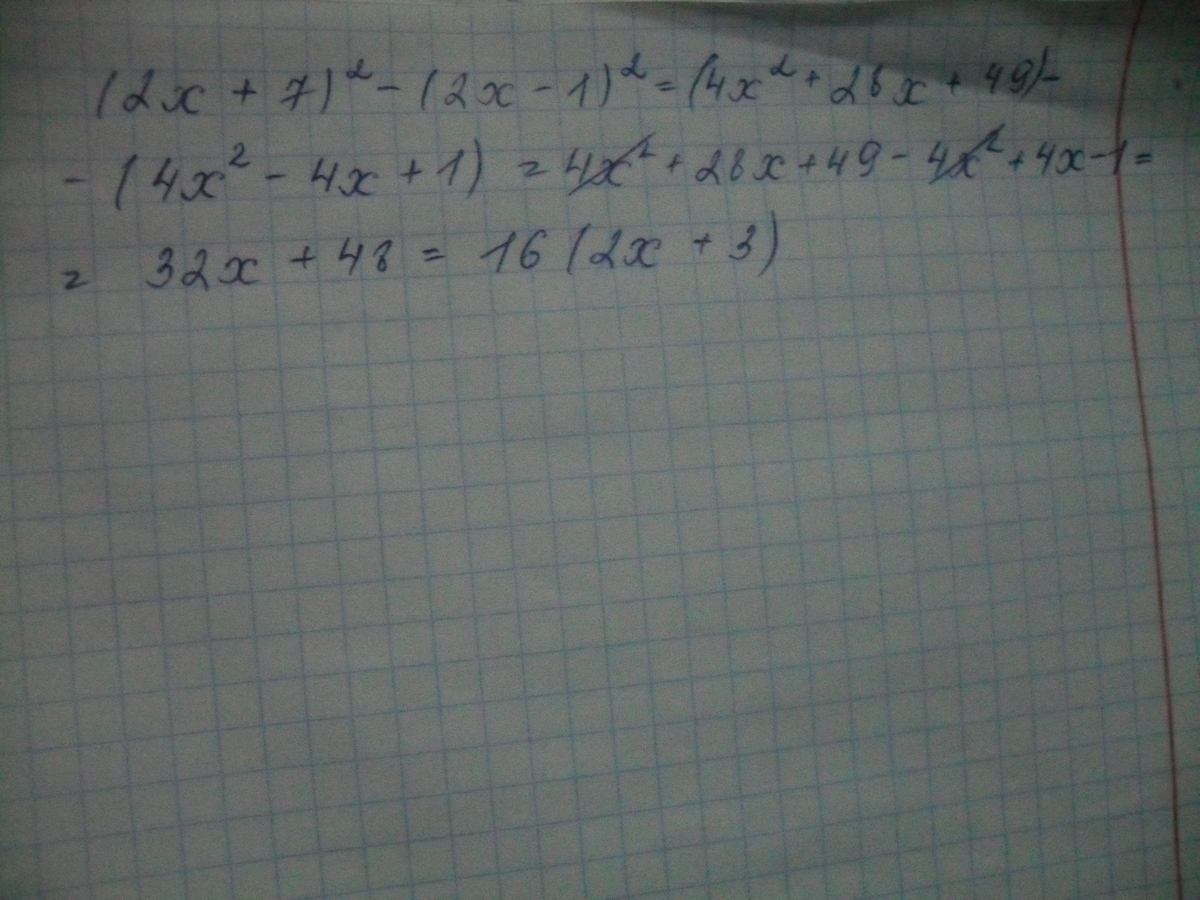 (2x + 7)² - (2x - 1)² = (4x² + 28x + 49) -
- (4x² - 4x + 1) = 4x² + 28x + 49 - 4x² + 4x - 1 =
= 32x + 48 = 16 (2x + 3)